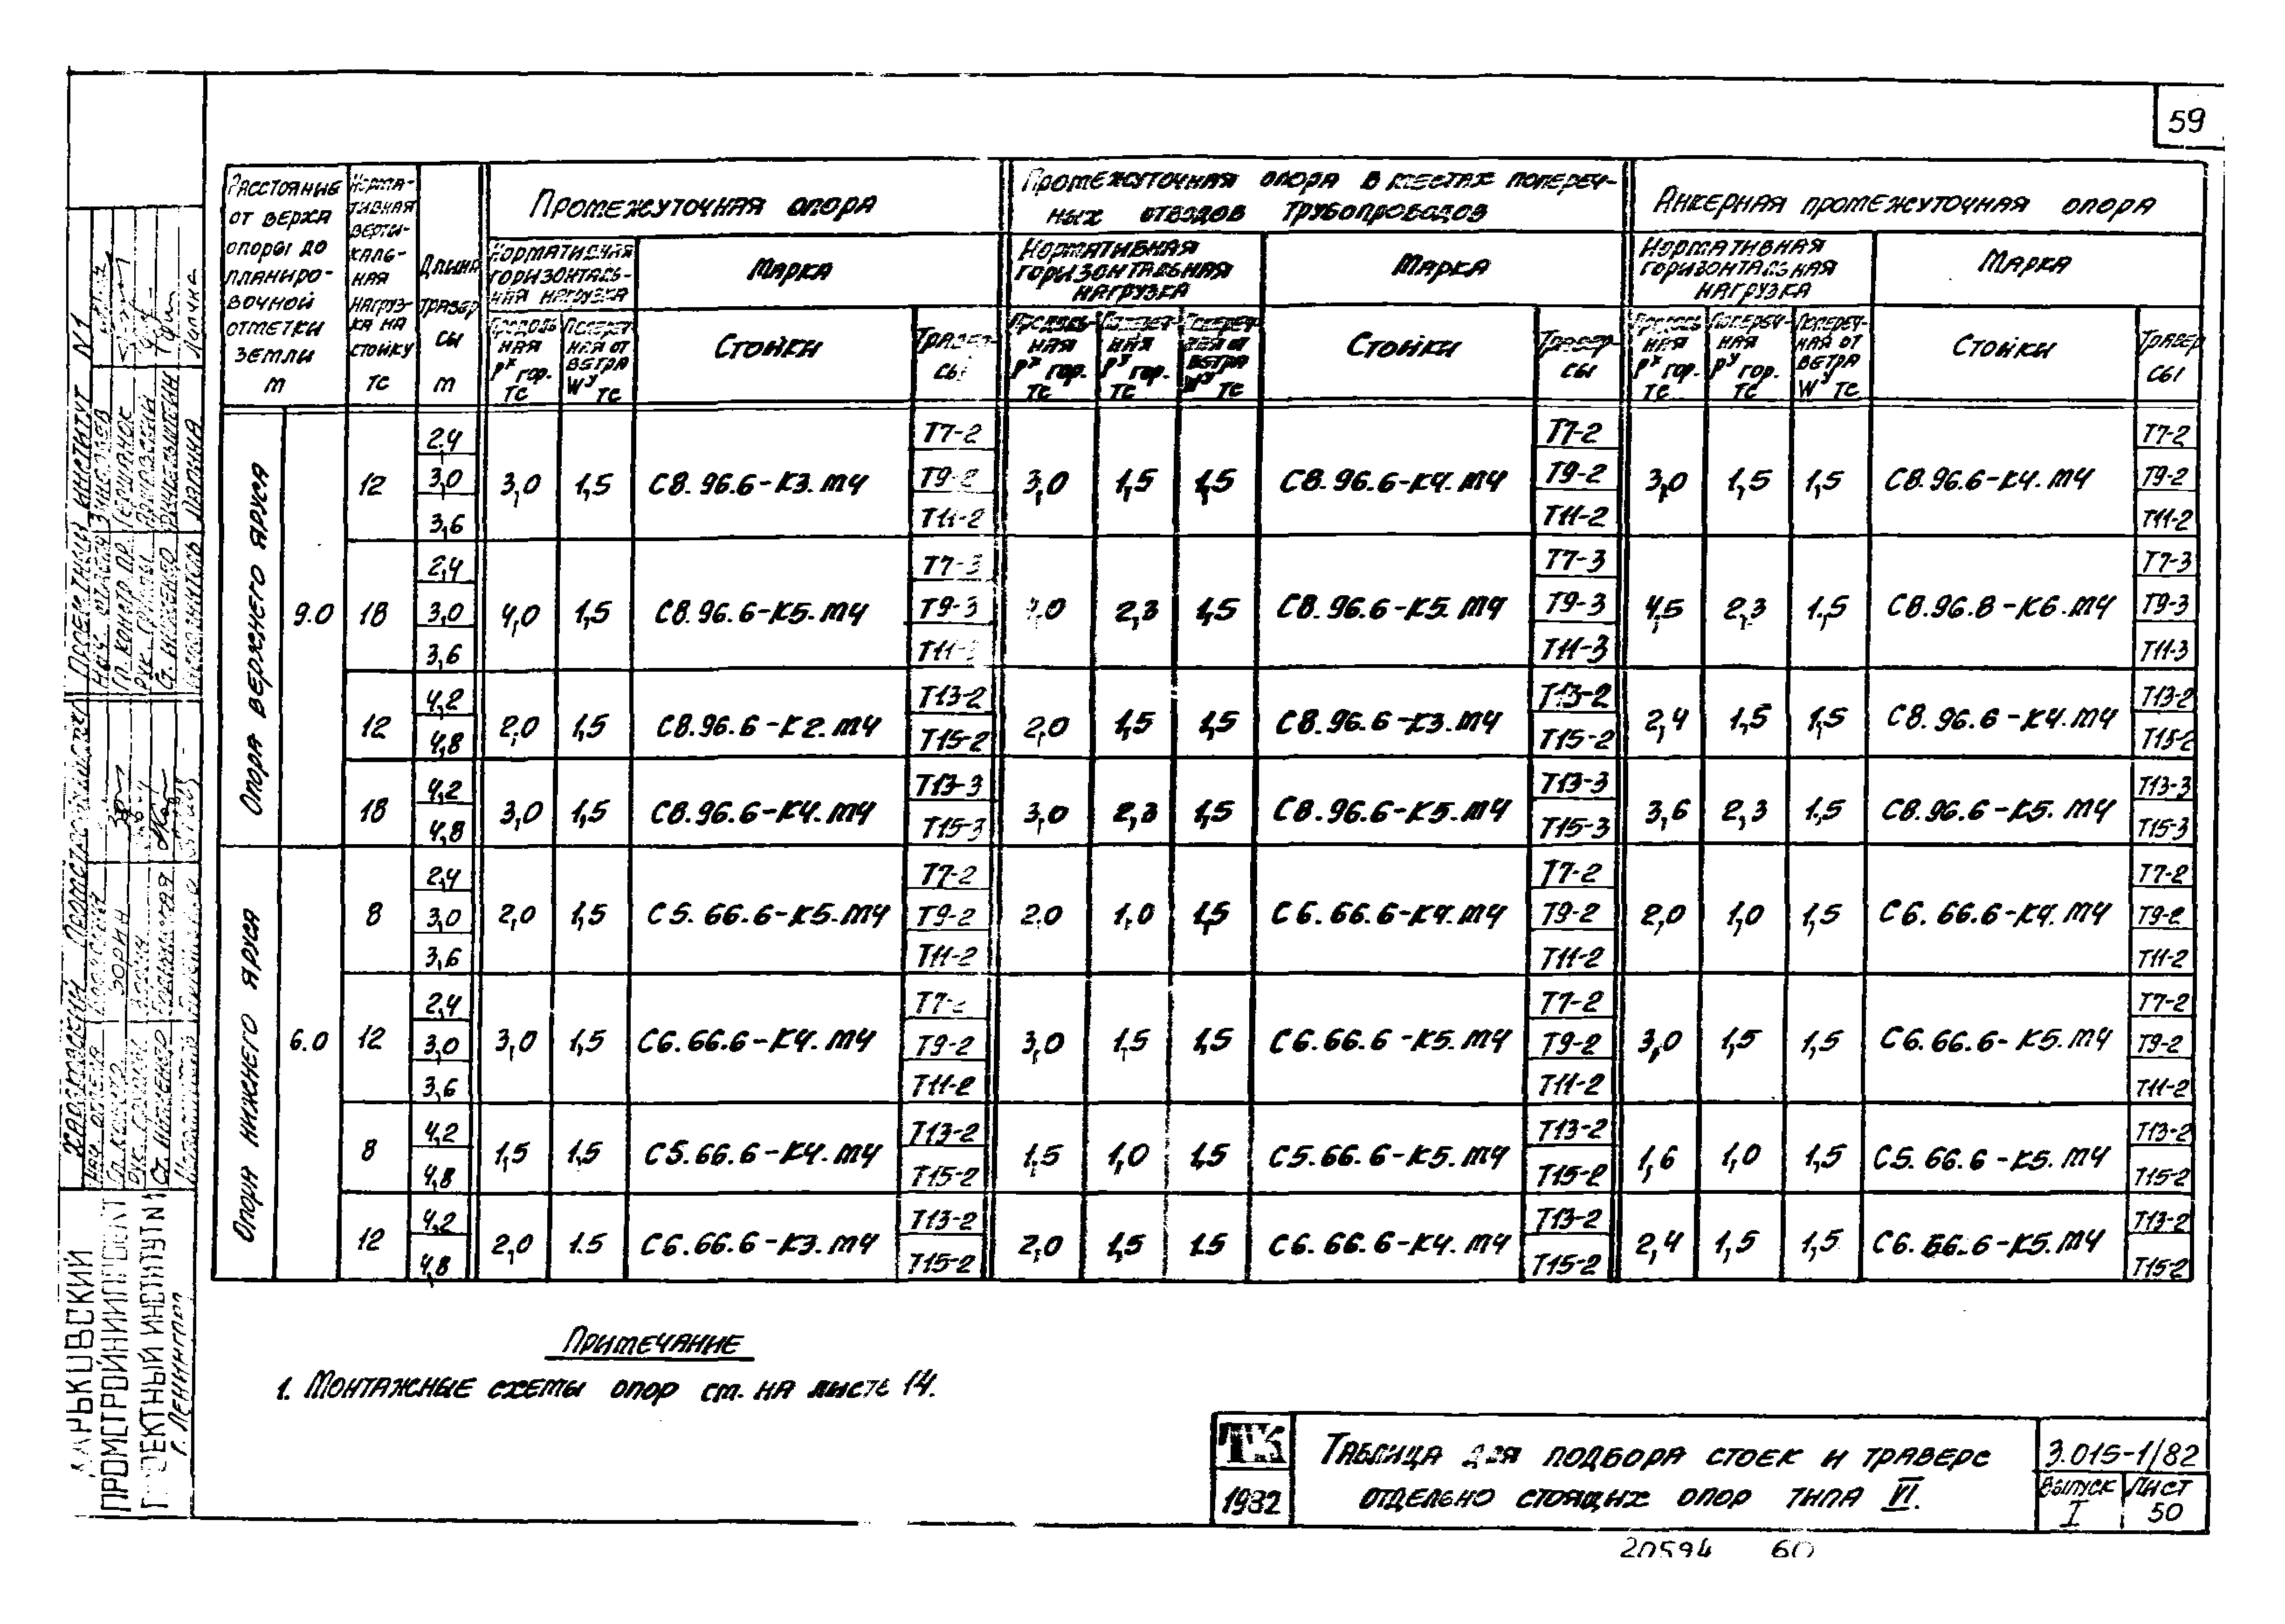 59
Расстояние от верха опоры до планировочной отметки земли м
Нормативная вертикальная нагрузка на стойку тс
Длина траверсы м
Промежуточная опора
Промежуточная опора в местах поперечных отводов трубопроводов
Анкерная промежуточная опора
Нормативная горизонтальная нагрузка
Марка
Нормативная горизонтальная нагрузка
Марка
Нормативная горизонтальная нагрузка
Марка
Продольная Pˣ гор. тс
Поперечная от ветра Wʸ тс
Стойки
Траверсы
Продольная Pˣ гор. тс
Поперечная Pʸ гор. тс
Поперечная от ветра Wʸ тс
Стойки
Траверсы
Продольная Pˣ гор. тс
Поперечная Pʸ гор. тс
Поперечная от ветра Wʸ тс
Стойки
Траверсы
Опора верхнего яруса
9.0
12 2,4 3,0 3,6 3,0 1,5 С8.96.6-К3.М4 Т7-2 Т9-2 Т11-2 3,0 1,5 1,5 С8.96.6-К4.М4 Т7-2 Т9-2 Т11-2 3,0 1,5 1,5 С8.96.6-К4.М4 Т7-2 Т9-2 Т11-2
18 2,4 3,0 3,6 4,0 1,5 С8.96.6-К5.М4 Т7-3 Т9-3 Т11-3 2,3 1,5 С8.96.6-К5.М4 Т7-3 Т9-3 Т11-3 4,5 2,3 1,5 С8.96.8-К6.М4 Т7-3 Т9-3 Т11-3
12 4,2 4,8 2,0 1,5 С8.96.6-К2.М4 Т13-2 Т15-2 2,0 1,5 1,5 С8.96.6-К3.М4 Т13-2 Т15-2 2,4 1,5 1,5 С8.96.6-К4.М4 Т13-2 Т15-2
18 4,2 4,8 3,0 1,5 С8.96.6-К4.М4 Т13-3 Т15-3 3,0 2,3 1,5 С8.96.6-К5.М4 Т13-3 Т15-3 3,6 2,3 1,5 С8.96.6-К5.М4 Т13-3 Т15-3
Опора нижнего яруса
6.0
8 2,4 3,0 3,6 2,0 1,5 С5.66.6-К5.М4 Т7-2 Т9-2 Т11-2 2,0 1,0 1,5 С6.66.6-К4.М4 Т7-2 Т9-2 Т11-2 2,0 1,0 1,5 С6.66.6-К4.М4 Т7-2 Т9-2 Т11-2
12 2,4 3,0 3,6 3,0 1,5 С6.66.6-К4.М4 Т7-2 Т9-2 Т11-2 3,0 1,5 1,5 С6.66.6-К5.М4 Т7-2 Т9-2 Т11-2 3,0 1,5 1,5 С6.66.6-К5.М4 Т7-2 Т9-2 Т11-2
8 4,2 4,8 1,5 1,5 С5.66.6-К4.М4 Т13-2 Т15-2 1,5 1,0 1,5 С5.66.6-К5.М4 Т13-2 Т15-2 1,6 1,0 1,5 С5.66.6-К5.М4 Т13-2 Т15-2
12 4,2 4,8 2,0 1.5 С6.66.6-К3.М4 Т13-2 Т15-2 2,0 1,5 1.5 С6.66.6-К4.М4 Т13-2 Т15-2 2,4 1,5 1,5 С6.66.6-К5.М4 Т13-2 Т15-2
Примечание
1. Монтажные схемы опор см. на листе 14.
ТК
1982
Таблица для подбора стоек и траверс
отдельно стоящих опор типа VI.
3.015-1/82
Выпуск Лист
I 50
20594 60
Харьковский
Проектный институт N1
г. Ленинград